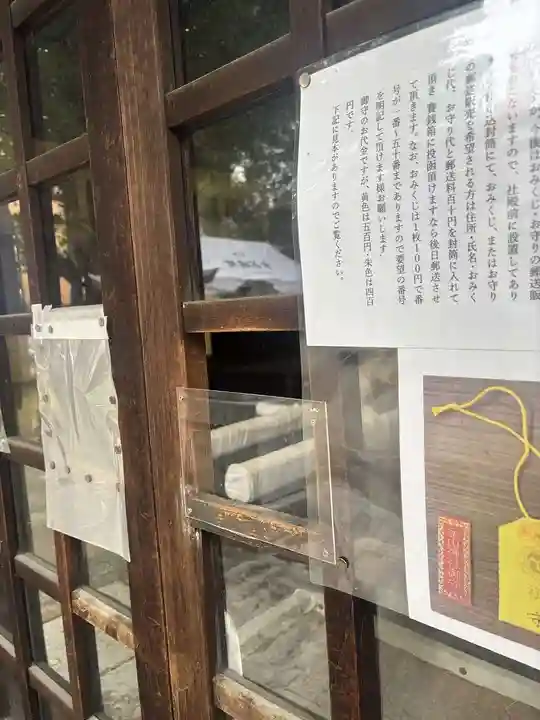 今後はおみくじ・お守りの郵送販
ないますので、社殿前に設置してあり
込封筒にて、おみくじ、またはお守り
の郵送販売を希望される方は住所・氏名・おみく
じ代、お守り代と郵送料百十円を封筒に入れて
頂き、賽銭箱に投函頂けますなら後日郵送させ
て頂きます。なお、おみくじは1枚100円で番
号が一番~五十番までありますので要望の番号
を明記して頂けます様お願いします。
御守のお代金ですが、黄色は五百円・朱色は四百
円です。
下記に見本がありますのでご覧ください。
守